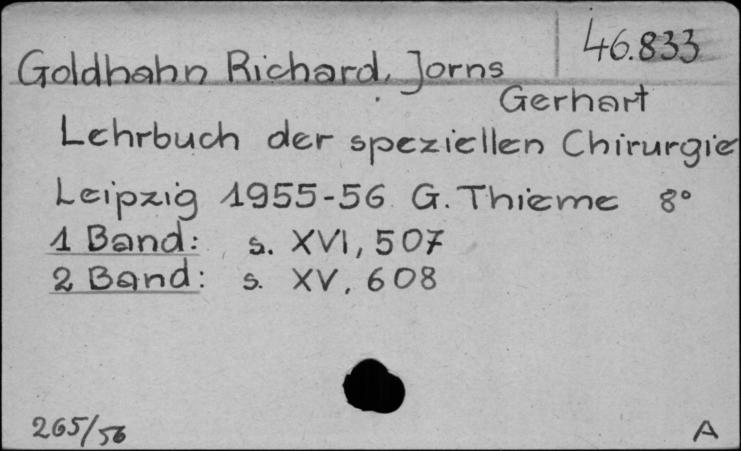 46.833
Goldhahn Richard, Jorns
Gerhart
Lehrbuch der speziellen Chirurgie
Leipzig 1955-56 G. Thieme 8°
1 Band: s. XVI, 507
2 Band: s. XV, 608
265/56
A